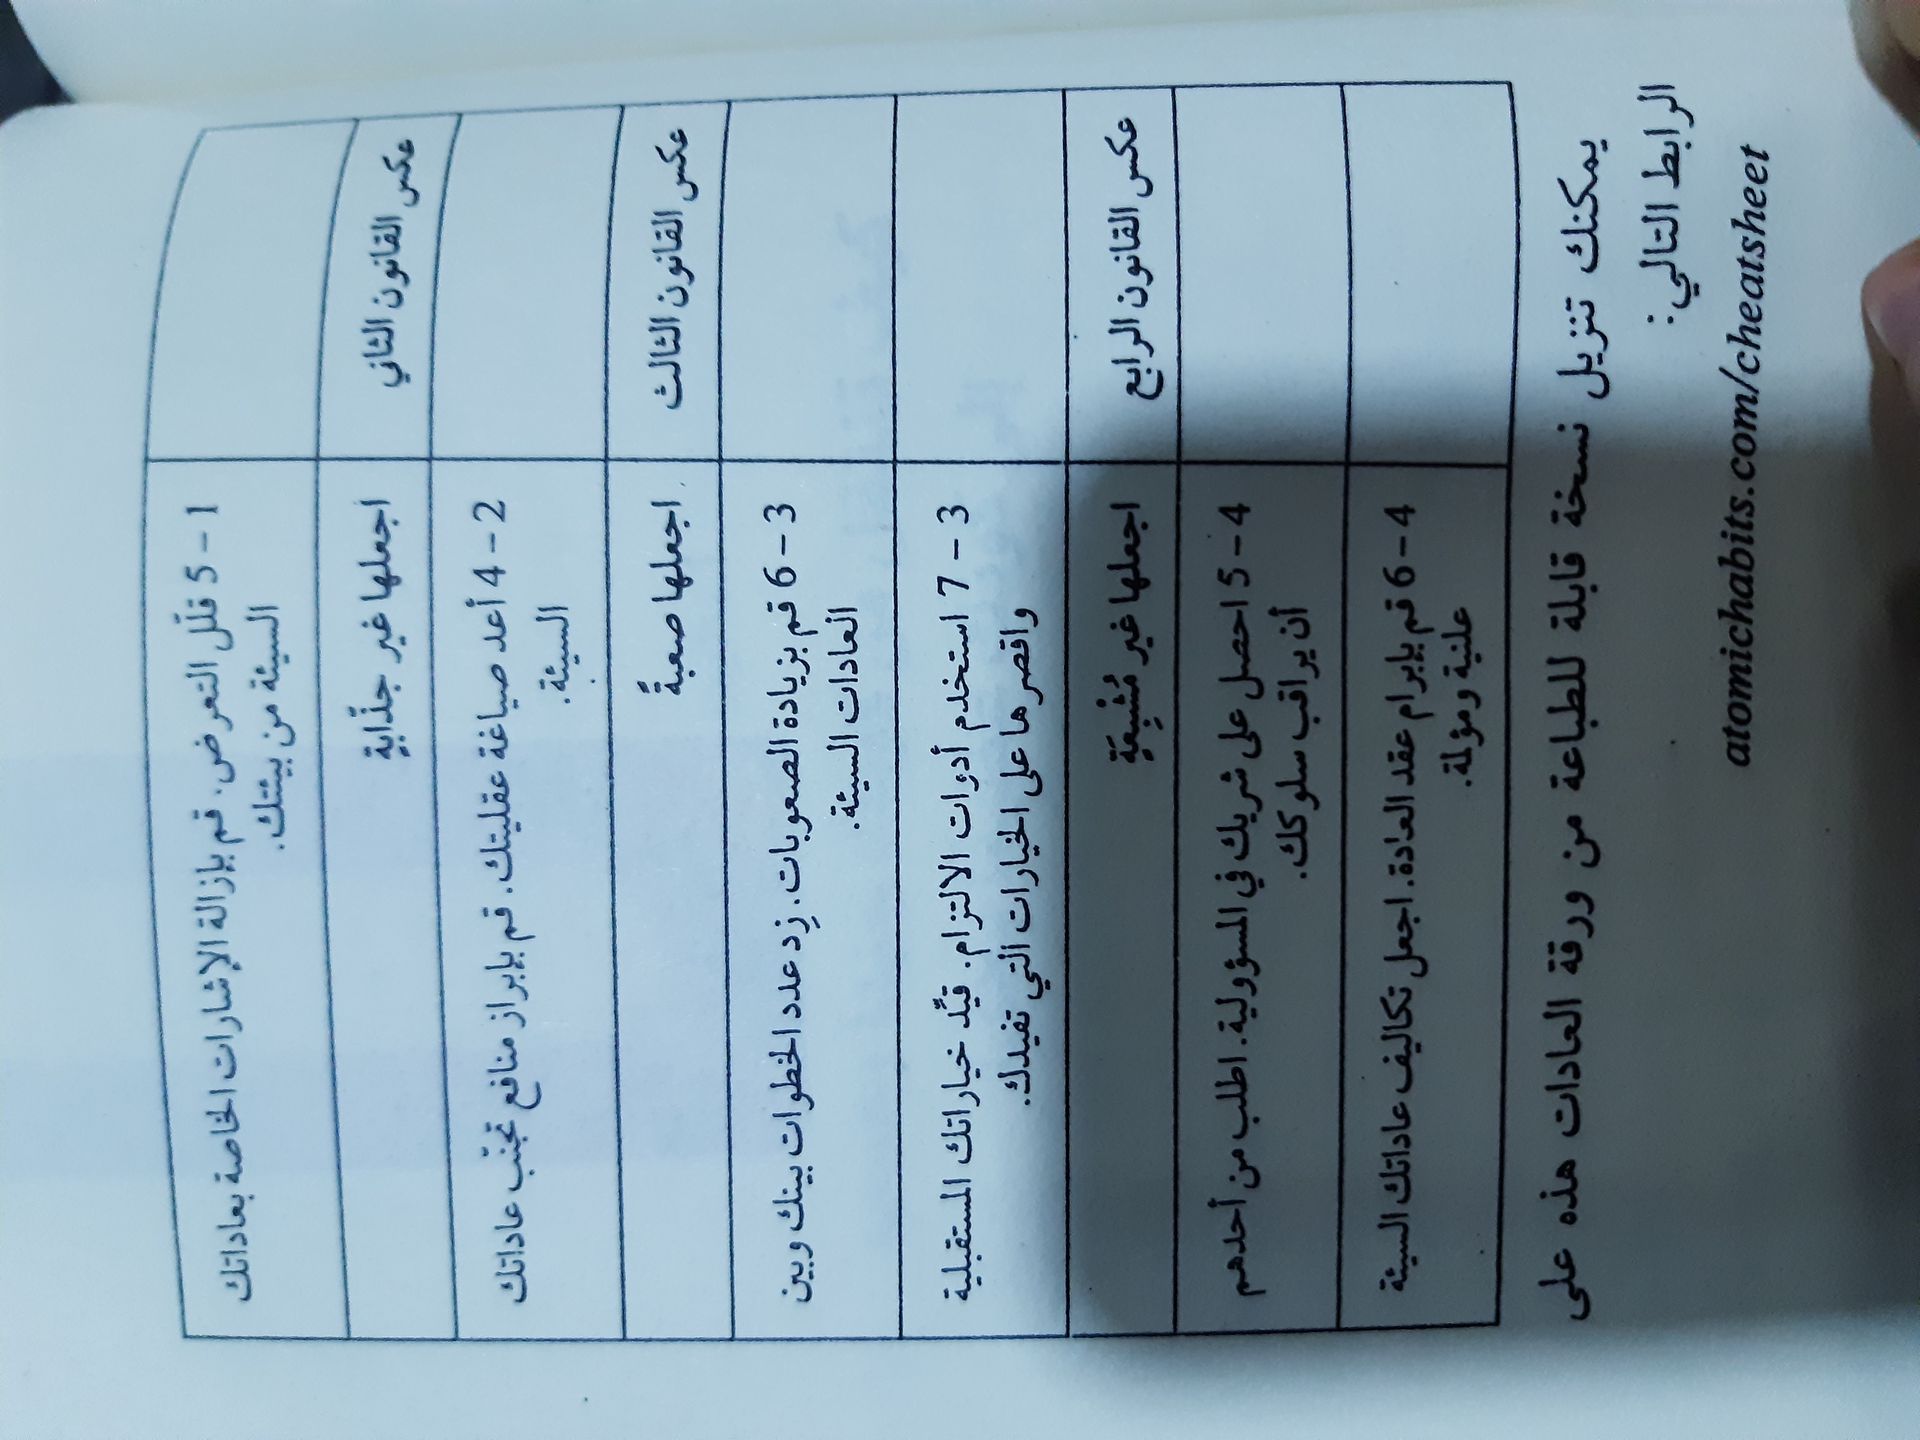 1 – 5 قلّل التعرض. قم بإزالة الإشارات الخاصة بعاداتك
السيئة من بيئتك.
عكس القانون الثاني
اجعلها غير جذّابةٍ
2 – 4 أعد صياغة عقليتك. قم بإبراز منافع تجنّب عاداتك
السيئة.
عكس القانون الثالث
اجعلها صعبةً
3 – 6 قم بزيادة الصعوبات. زِد عدد الخطوات بينك وبين
العادات السيئة.
3 – 7 استخدم أدوات الالتزام. قيِّد خياراتك المستقبلية
واقصرها على الخيارات التي تفيدك.
عكس القانون الرابع
اجعلها غير مُشْبِعَةٍ
4 – 5 احصل على شريك في المسؤولية. اطلب من أحدهم
أن يراقب سلوكك.
4 – 6 قم بإبرام عقد العادة. اجعل تكاليف عاداتك السيئة
علنية ومؤلمة.
يمكنك تنزيل نسخة قابلة للطباعة من ورقة العادات هذه على
الرابط التالي:
atomichabits.com/cheatsheet